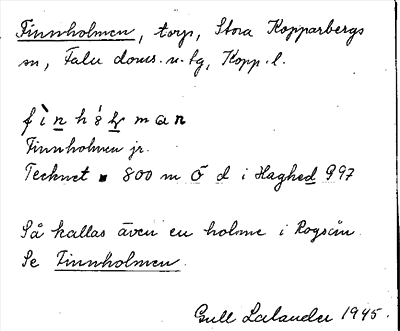 Finnholmen, torp, Stora Kopparbergs
sn, Falu doms. n. tg, Kopp. l.
Finnholmen jr.
Tecknet ▪ 800 m Ö d i Haghed 997
Så kallas även en holme i Rogsån
Se Finnholmen.
Gull Lalander 1945.